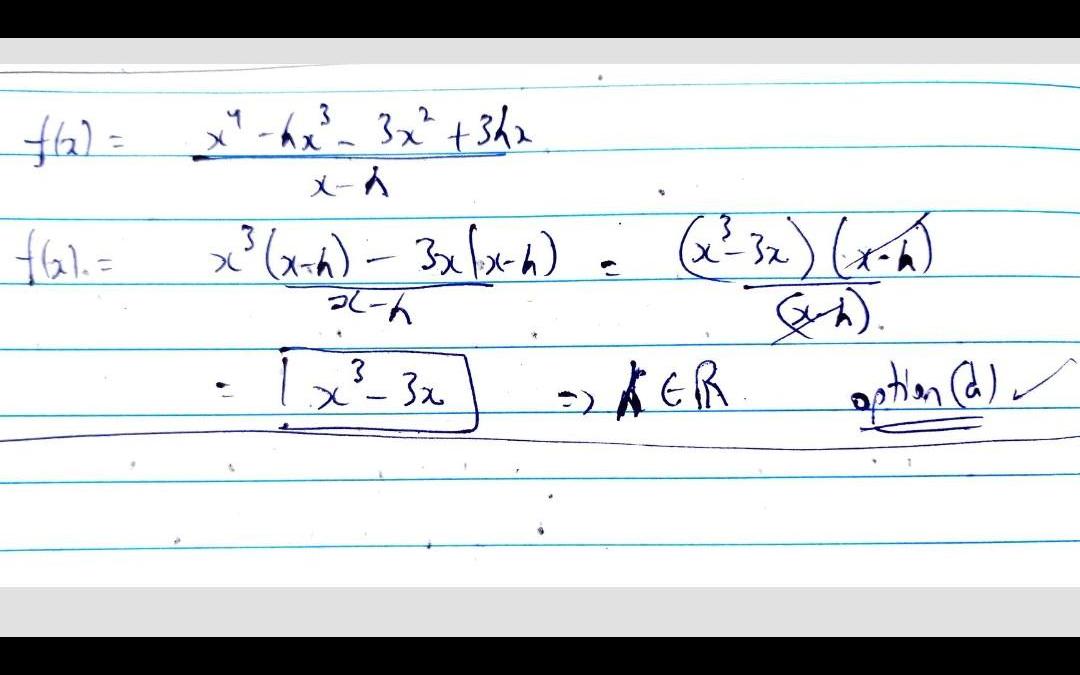 f(x) = x⁴ - hx³ - 3x² + 3hx / x - h
f(x) = x³(x-h) - 3x(x-h) / x-h = (x³-3x)(x-h) / (x-h).
= x³ - 3x => h ∈ ℝ. option (d) ✓